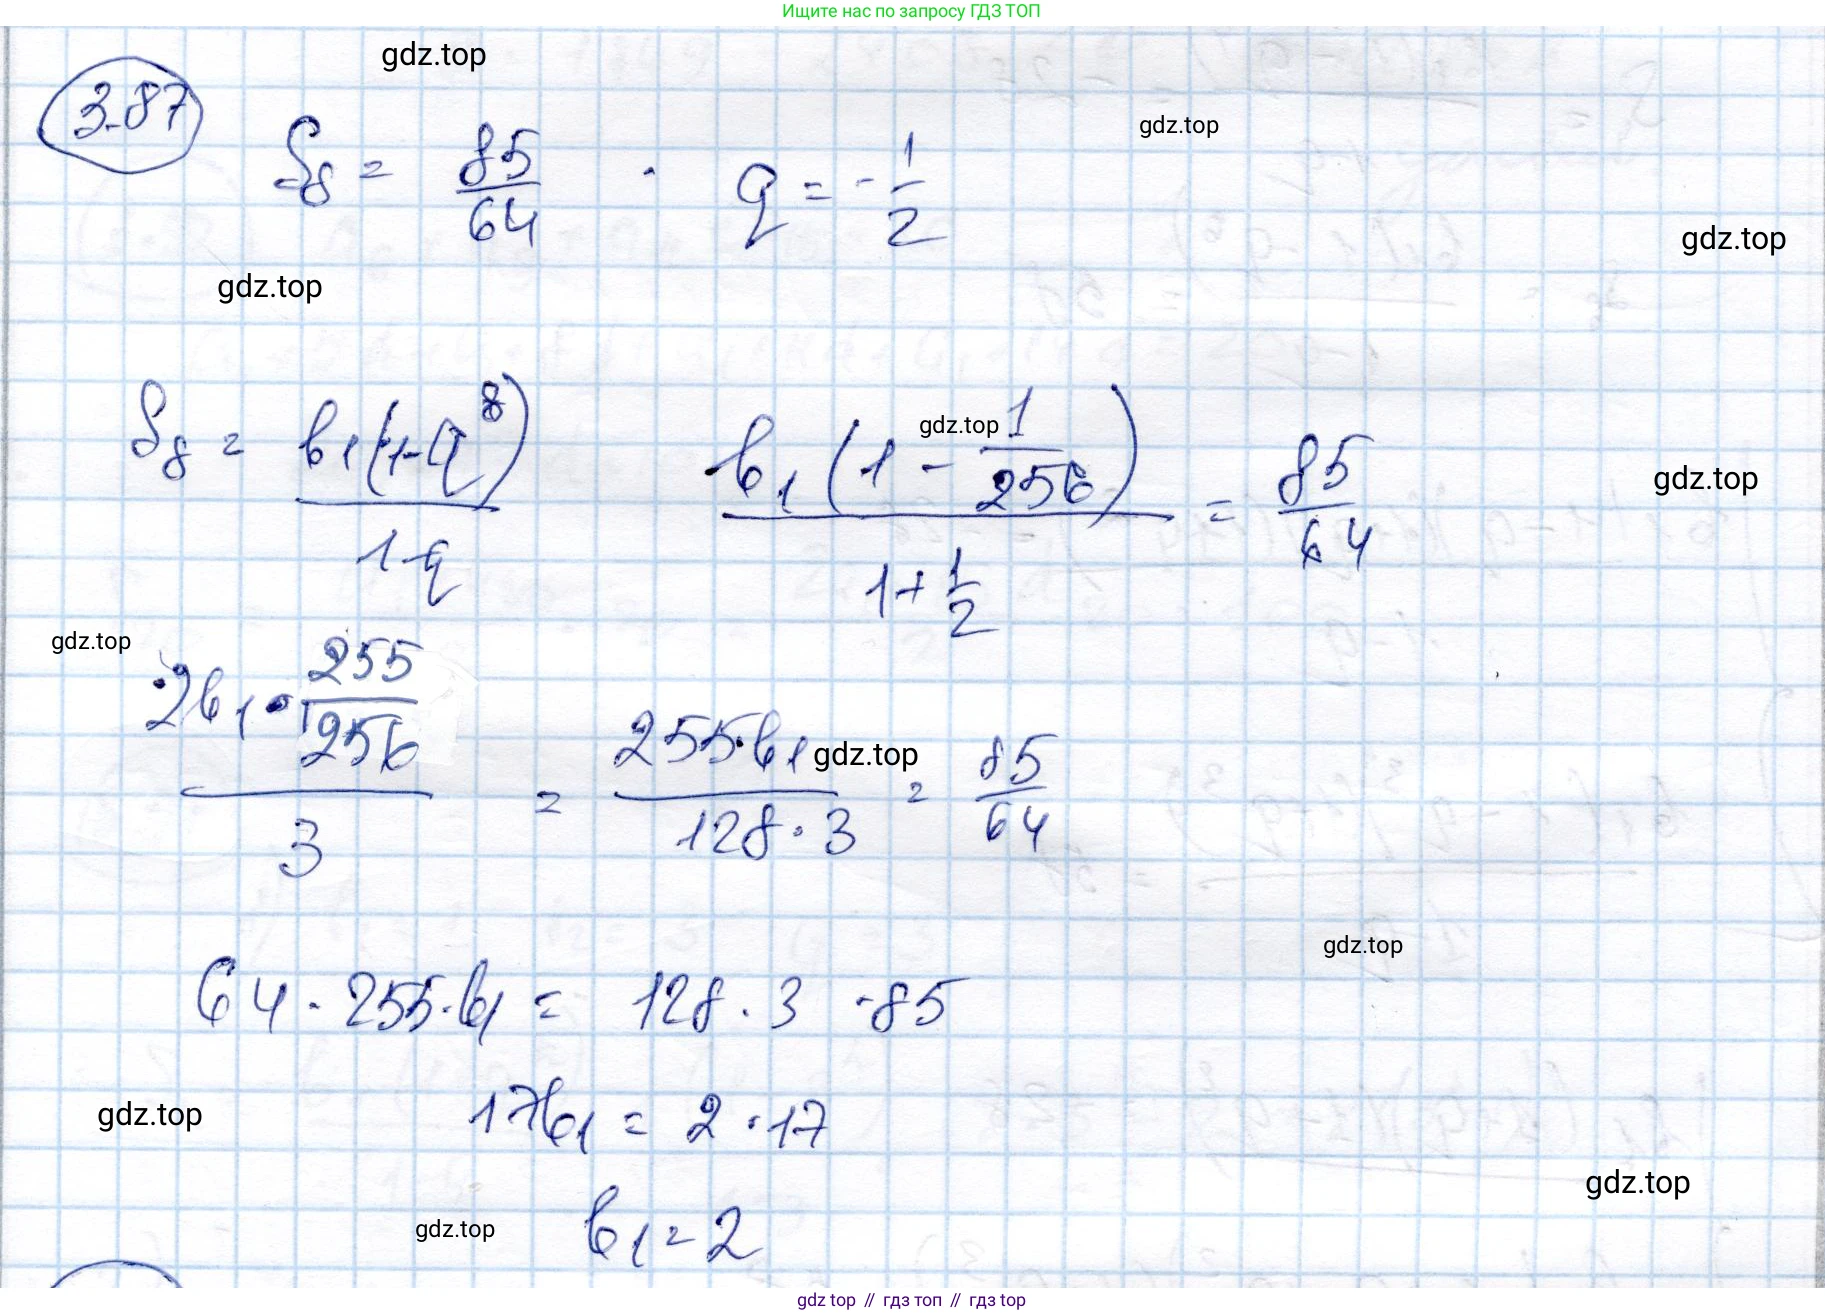 Ищите нас по запросу ГДЗ ТОП
gdz.top
3.87
S₈ = 85/64 . q = -1/2
gdz.top
gdz.top
gdz.top
S₈ = b₁(1-q⁸)/(1-q) b₁(1 - 1/256)/(1+1/2) = 85/64
gdz.top
gdz.top
gdz.top
2b₁ · 255/256 / 3 = 255·b₁/(128·3) = 85/64
gdz.top
gdz.top
64 · 255·b₁ = 128 · 3 · 85
17b₁ = 2 · 17
gdz.top
gdz.top
b₁ = 2
gdz.top
gdz top // гдз топ // gdz top